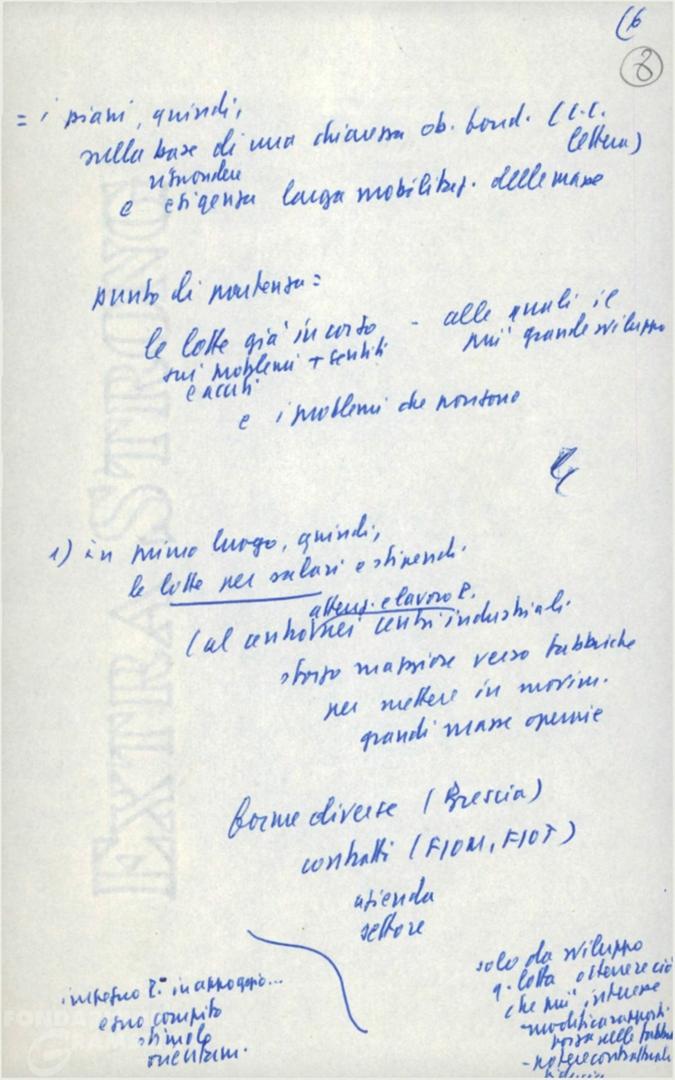 (6
8
= i piani, quindi,
sulla base di una chiarezza ob. fond. (C.C.
lettera)
rispondere
e esigenza larga mobilitaz. delle masse
punto di partenza =
le lotte già in corso - alle quali il
sui problemi + sentiti più grande sviluppo
e acuti
e i problemi che pongono
1) in primo luogo, quindi,
le lotte per salari e stipendi.
attenz. e lavoro P.
(al centro nei centri industriali.
sforzo maggiore verso fabbriche
per mettere in movim.
grandi masse operaie
forme diverse (Brescia)
contratti (FIOM, FIOT)
azienda
settore
impegno P. in appoggio...
e suo compito
stimolo
orientam.
solo da sviluppo
q. lotta ottenere ciò
che più interessa
- modificaz rapporti
forza nelle fabbri
- potere contrattuale
EXTRA STRONG
FONDAZ
GRAM